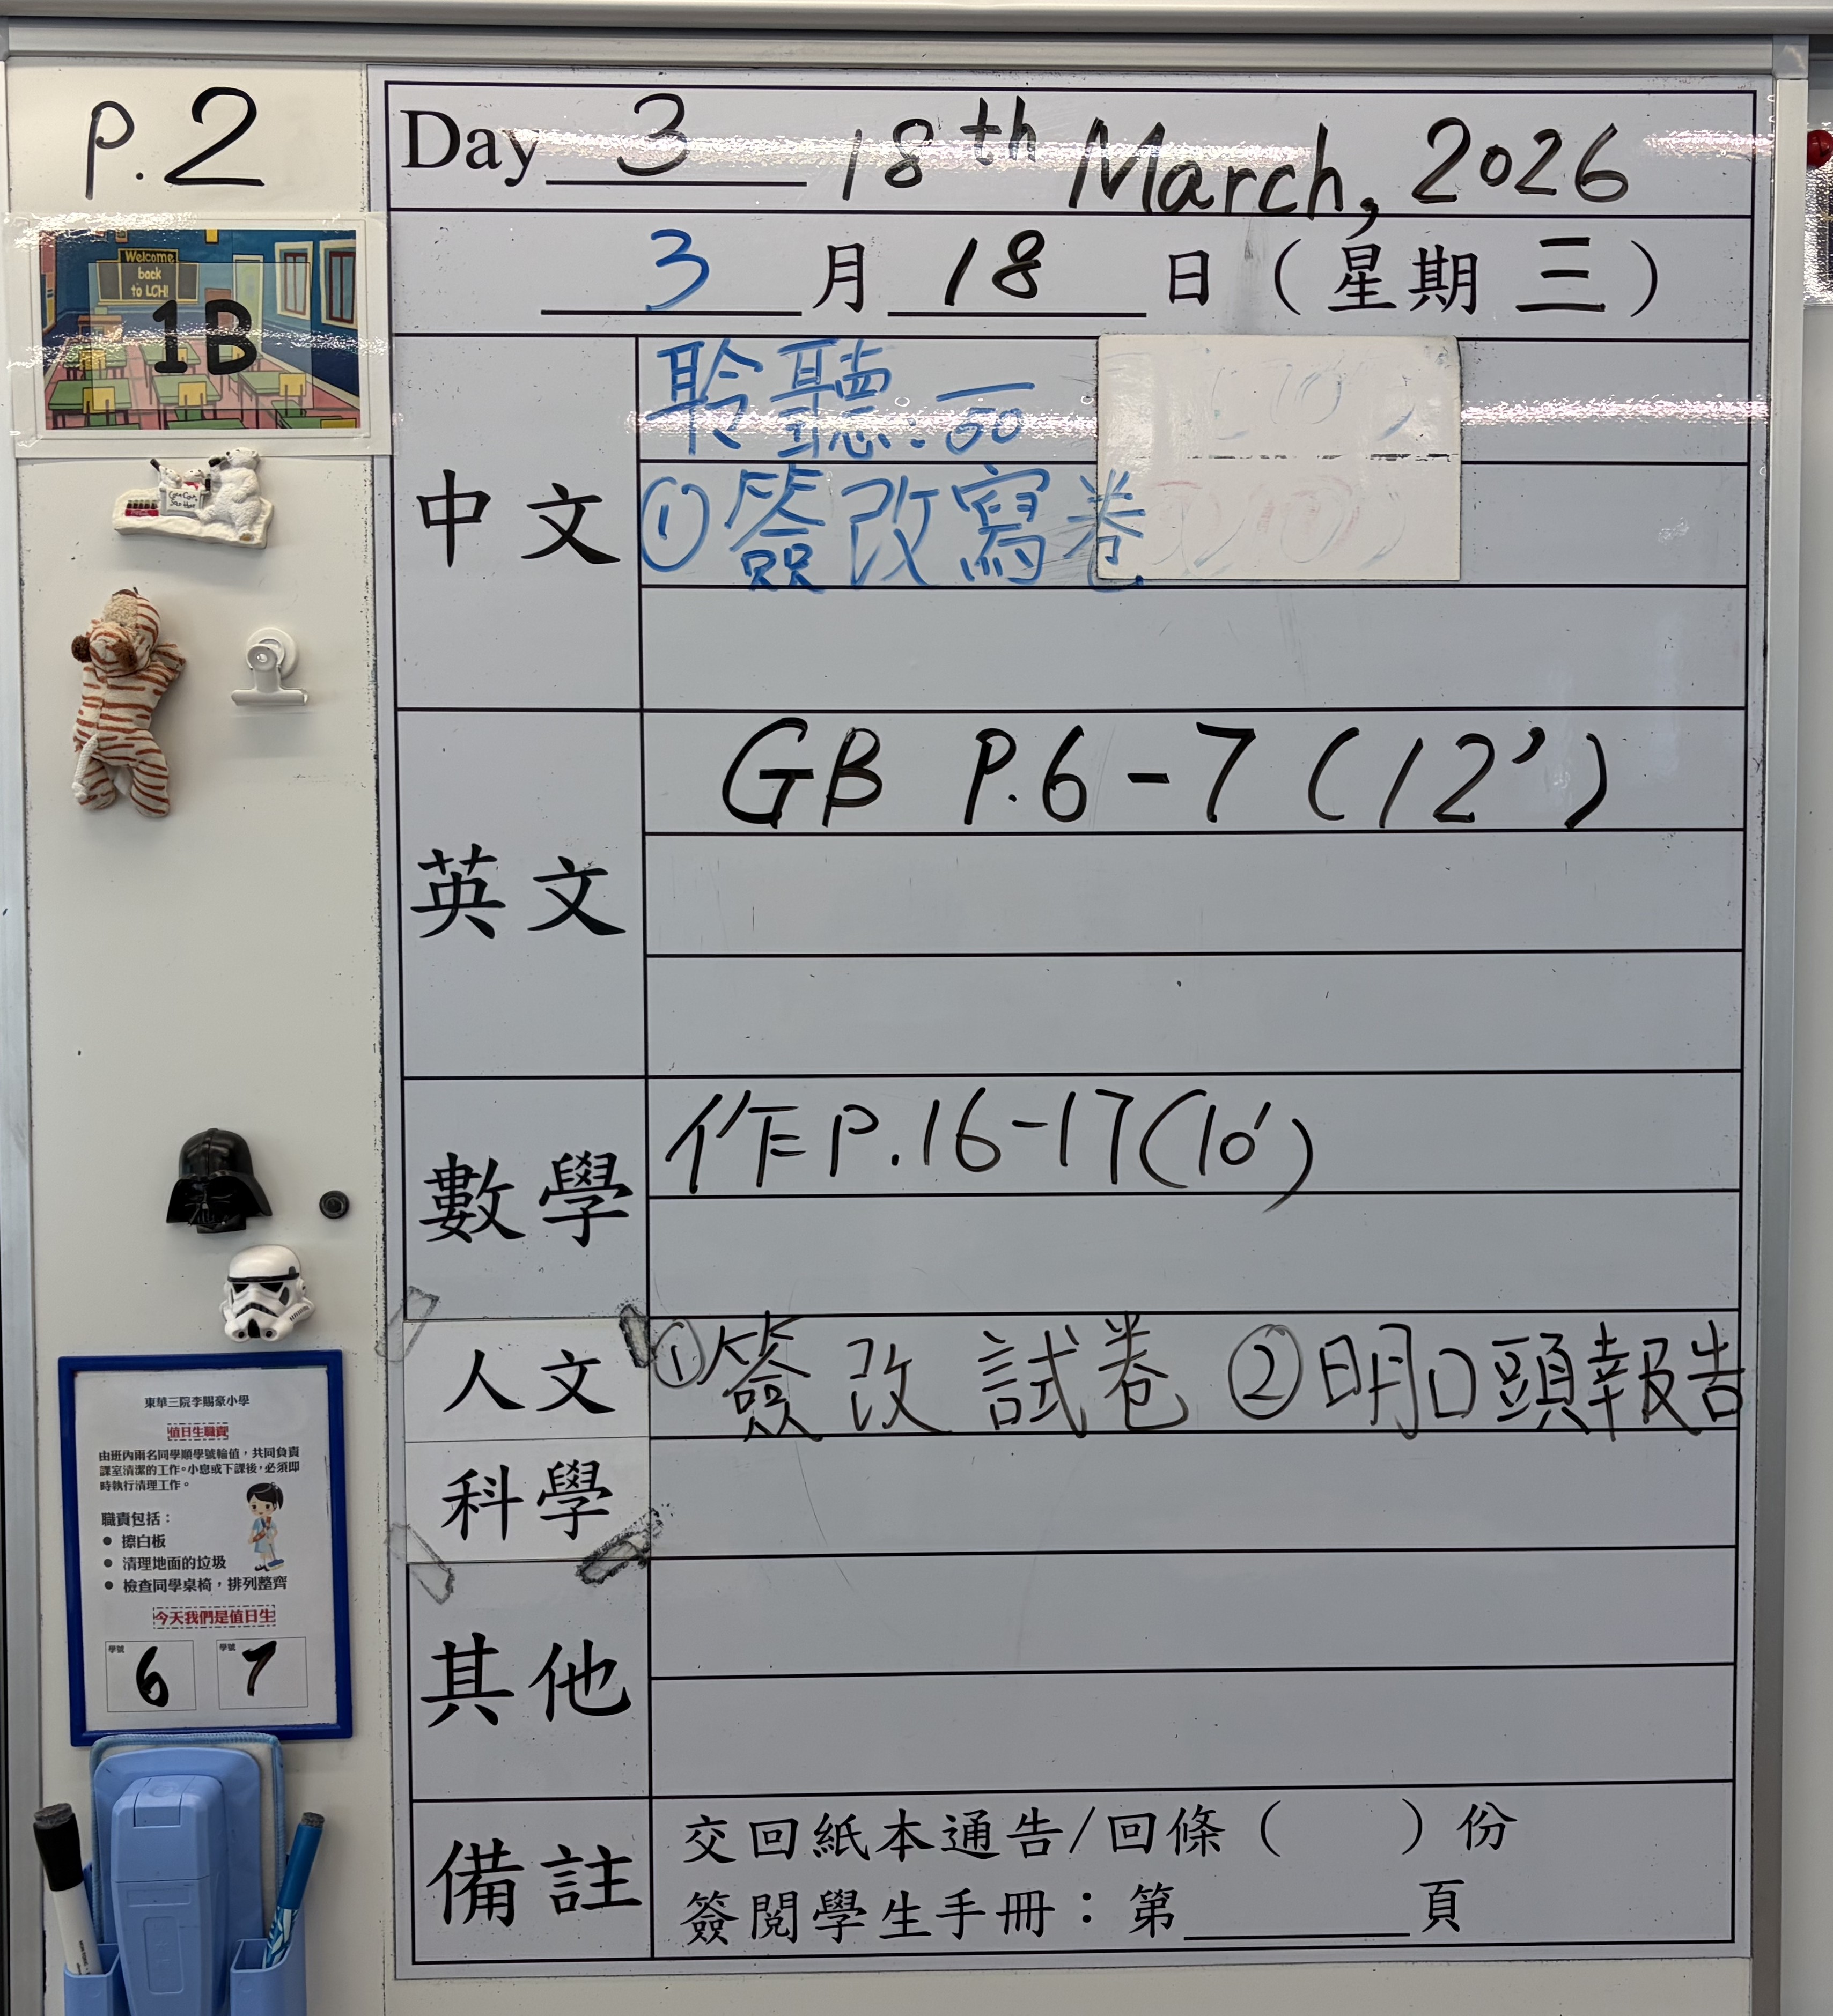 P.2
Day 3 18th March, 2026
3 月 18 日 ( 星期 三 )
Welcome
back
to LCH!
1B
中文
聆聽: — 50
① 簽改寫卷
英文
GB P.6-7 (12')
數學
作 P.16-17(10')
人文
① 簽改試卷 ② 明口頭報告
科學
其他
備註
交回紙本通告/回條 ( ) 份
簽閱學生手冊:第 頁
東華三院李賜豪小學
值日生職責
由班內兩名同學順學號輪值,共同負責
課室清潔的工作。小息或下課後,必須即
時執行清理工作。
職責包括:
● 擦白板
● 清理地面的垃圾
● 檢查同學桌椅,排列整齊
今天我們是值日生
學號 6 學號 7